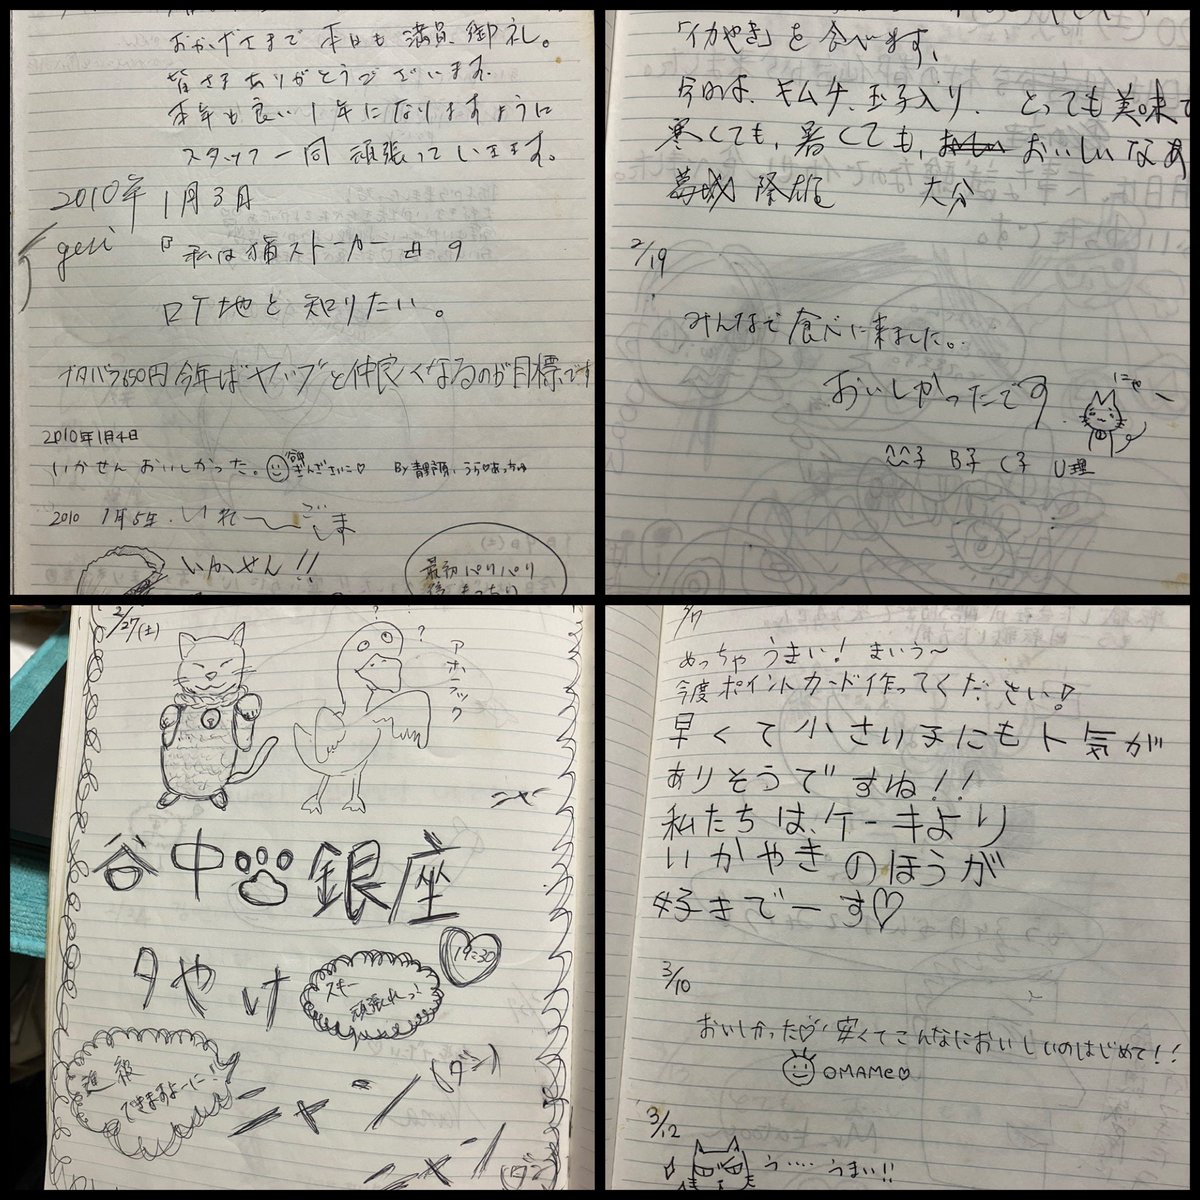 おかげさまで本日も満員御礼。
皆さまありがとうございます。
本年も良い1年になりますように
スタッフ一同頑張っています。
2010年1月3日
geri 『私は猫ストーカー
ロケ地と知りたい。
650円 今年はヤップと仲良くなるのが目標です
2010年1月4日
いかせんおいしかった。 By
2010 1月5日.
いかせん!!
最初パリパリ
「イカやき」を食べます、
今日は、キムチ、玉子入り、とっても美味で
寒くても、暑くても、おいしいなあ
葛城 隆雄 大分
2/19
みんなで食べに来ました。
おいしかったです
にゃー
B子 C子 U理
2/27(土)
? ?
アホラック
谷中 銀座
夕やけ
19:30
スキー
頑張れっ!
進級
できますよーに!
ニャン(ダン)
ニャン(ダン
3/7
めっちゃうまい!まいう~
今度ポイントカード作ってください!
早くて小さい子にも人気が
ありそうですね!!
私たちは、ケーキより
いかやきのほうが
好きでーす♡
3/10
おいしかった♡安くてこんなにおいしいのはじめて!!
OMAME♡
3/12
う‥‥うまい!!